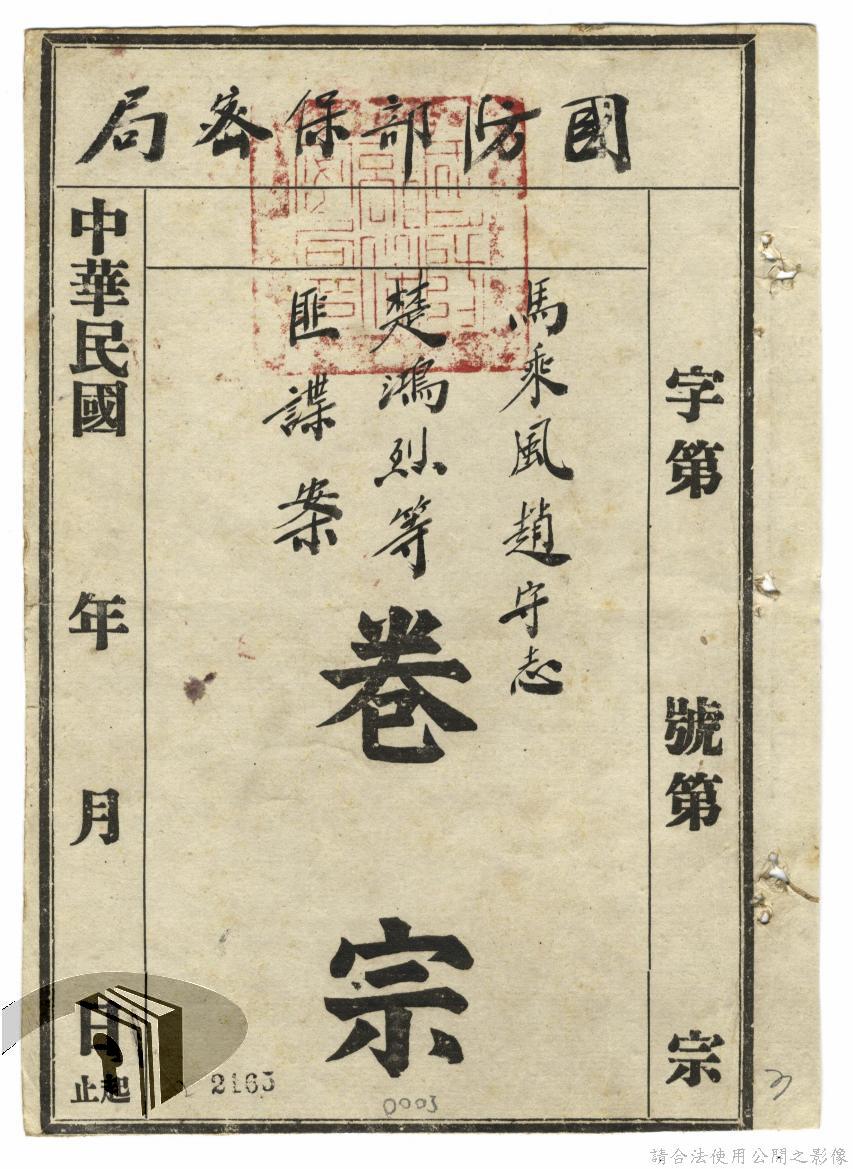 國防部保密局
字第　號第　宗
馬乘風趙守志
楚鴻烈等
匪諜案
卷宗
中華民國　年　月　日起止
2163
0003
請合法使用公開之影像